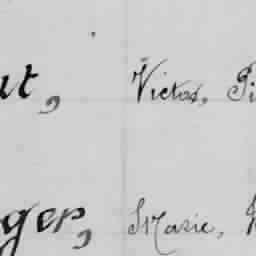 ut, Victor, Pi
ger, Marie,